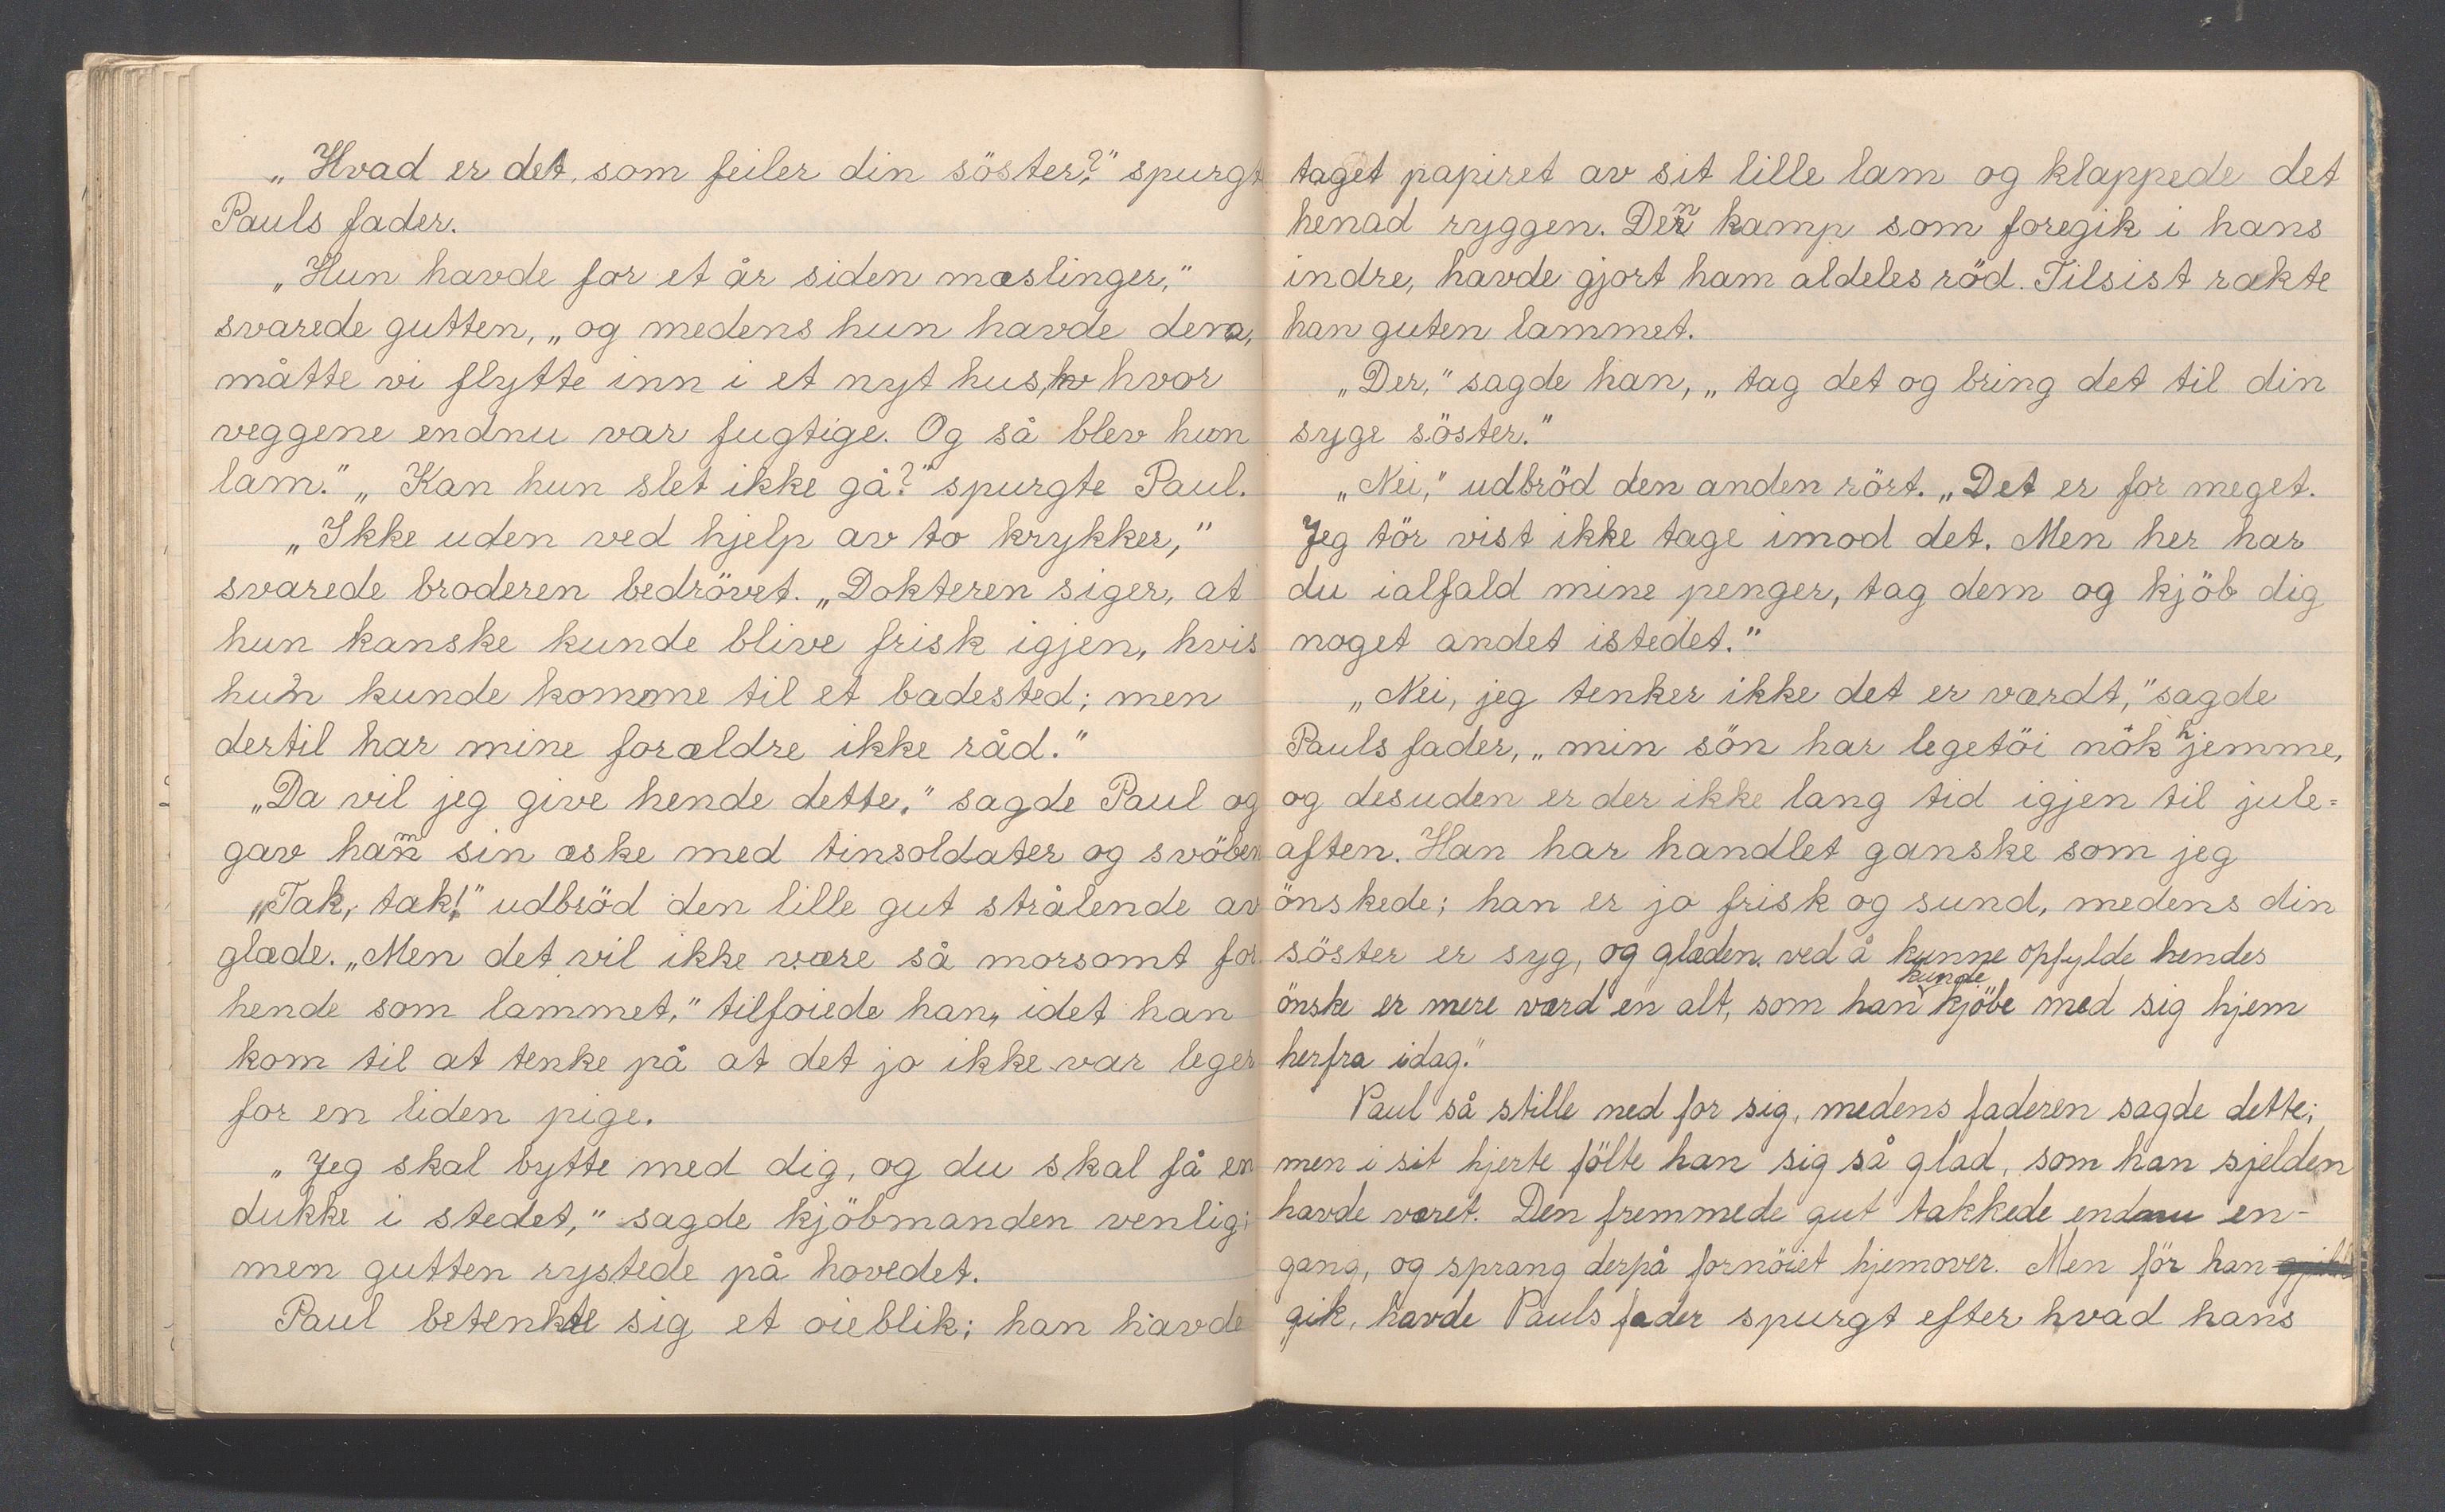 „Hvad er det som feiler din söster?" spurgt
Pauls fader.
„Hun havde for et år siden mæslinger,"
svarede gutten, „og medens hun havde dem,
måtte vi flytte inn i et nyt hus, hvor
veggene endnu var fugtige. Og så blev hun
lam." „Kan hun slet ikke gå?" spurgte Paul.
„Ikke uden ved hjelp av to krykker,"
svarede broderen bedrövet. „Dokteren siger, at
hun kanske kunde blive frisk igjen, hvis
hun kunde komme til et badested; men
dertil har mine forældre ikke råd."
„Da vil jeg give hende dette," sagde Paul og
gav ham sin æske med tinsoldater og svöben
„Tak, tak!" udbröd den lille gut strålende av
glæde. „Men det vil ikke være så morsomt for
hende som lammet," tilfoiede han, idet han
kom til at tenke på at det jo ikke var leger
for en liden pige.
„Jeg skal bytte med dig, og du skal få en
dukke i stedet," sagde kjöbmanden venlig;
men gutten rystede på hovedet.
Paul betenkte sig et oieblik; han havde
taget papiret av sit lille lam og klappede det
henad ryggen. Den kamp som foregik i hans
indre, havde gjort ham aldeles röd. Tilsist rakte
han guten lammet.
„Der," sagde han, „tag det og bring det til din
syge söster."
„Nei," udbröd den anden rört. „Det er for meget.
Jeg tör vist ikke tage imod det. Men her har
du ialfald mine penger, tag dem og kjöb dig
noget andet istedet."
„Nei, jeg tenker ikke det er værdt," sagde
Pauls fader, „min sön har legetöi nok hjemme,
og desuden er der ikke lang tid igjen til jule=
aften. Han har handlet ganske som jeg
önskede; han er jo frisk og sund, medens din
söster er syg, og glæden ved å kunne opfylde hendes
önske er mere værd en alt, som han kunde kjöbe med sig hjem
herfra idag."
Paul så stille ned for sig, medens faderen sagde dette;
men i sit hjerte fölte han sig så glad, som han sjelden
havde været. Den fremmede gut takkede endnu en-
gang, og sprang derpå fornöiet hjemover. Men för han gjikk
gik, havde Pauls fader spurgt efter hvad hans